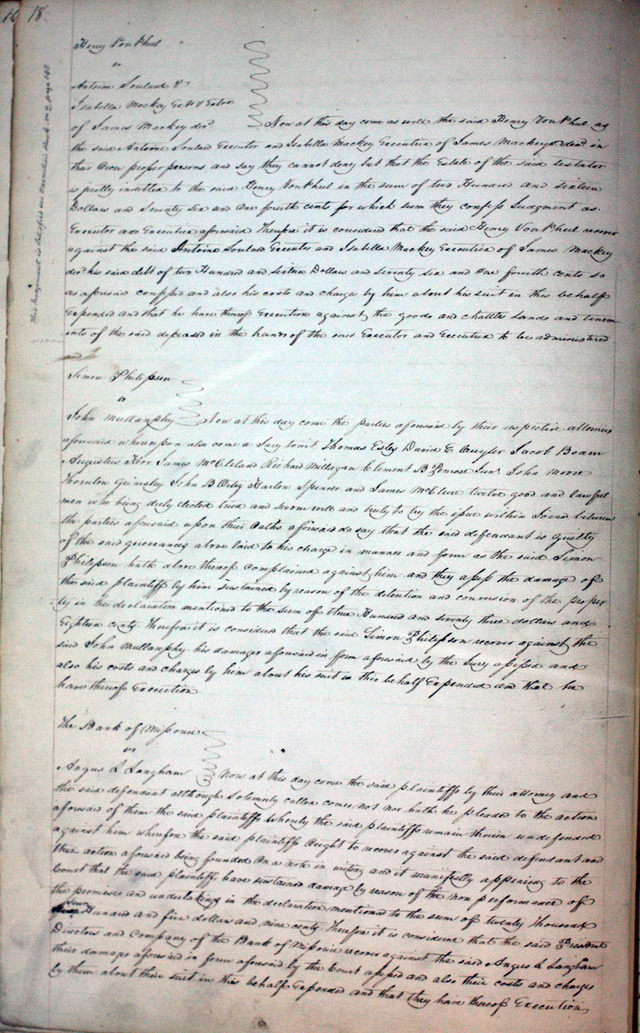 18
Henry Von Phul
vs
Antoine Soulard &
Isabella Mackey Exr & Extrx
of James Mackey decd
Now at this day come as well the said Henry Von Phul as
the said Antoine Soulard Executor and Isabella Mackey Executrix of James Mackey decd in
their Own proper persons and say they cannot deny but that the Estate of the said testator
is justly indebted to the said Henry Von Phul in the sum of two Hundred and sixteen
Dollars and Seventy six and One fourth cents for which sum they confess Judgment as
Executor and Executrix aforesaid Therefore it is considered that the said Henry Von Phul recover
against the said Antoine Soulard Executor and Isabella Mackey Executrix of James Mackey
decd his said debt of two Hundred and sixteen Dollars and seventy six and One fourth cents so
as aforesaid confessed and also his costs and charges by him about his suit in this behalf
Expended and that he have thereof Execution against the goods and chattles Lands and tenem
ents of the said deceased in the hands of the said Executor and Executrix to be administered
Simon Philipson
vs
John Mullanphy Now at this day come the parties aforesaid by their respective attornies
aforesaid whereupon also come a Jury towit Thomas Estey David E Cuyler Jacob Boam
Augustus Kerr James McCleland Richard Mullagan Clement B Penrose Junr John Moore
Thornton Grimsley John B Osby Harlow Spencer and James McClure twelve good and lawful
men who being duly elected tried and sworn well and truly to try the issue within Joined between
the parties aforesaid upon their Oaths aforesaid do say that the said defendant is guilty
of the said grievances above laid to his charge in manner and form as the said Simon
Philipson hath above thereof complained against him and they assess the damage of
the said plaintiff by him sustained by reason of the detention and conversion of the proper
ty in the declaration mentioned to the sum of three Hundred and seventy three dollars and
Eighteen cents Therefore it is considered that the said Simon Philipson recover against the
said John Mullanphy his damages aforesaid in form aforesaid by the Jury assessed and
also his costs and charges by him about his suit in this behalf Expended and that he
have thereof Execution
The Bank of Missouri
vs
Angus L Langham Now at this day come the said plaintiffs by their attorney and
the said defendant although Solemnly called comes not nor hath he pleaded to the action
aforesaid of them the said plaintiffs whereby the said plaintiffs remain therein undefended
against him wherefore the said plaintiffs Ought to recover against the said defendant and
this action aforesaid being founded On a note in writing and it manifestly appearing to the
Court that the said plaintiffs have sustained damage by reason of the non performance of
the promises and undertakings in the declaration mentioned to the sum of twenty thousand
Hundred and five dollars and nine cents Therefore it is considered that the said President
Directors and Company of the Bank of Missouri recover against the said Angus L Langham
their damages aforesaid in form aforesaid by the Court assessed and also their costs and charges
by them about their suit in this behalf Expended and that they have thereof Execution